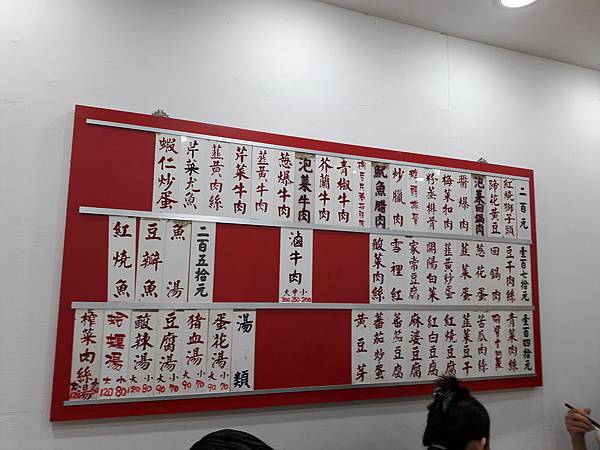 二百元
紅燒獅子頭
蹄花黃豆
泡菜回鍋肉
醬爆肉
梅菜扣肉
粉蒸排骨
炒臘肉
魷魚腊肉
青椒牛肉
芥蘭牛肉
泡菜牛肉
葱爆牛肉
韮黃牛肉
芹菜牛肉
韮黃肉絲
芹菜尤魚
蝦仁炒蛋
壹百七拾元
豆干肉絲
回鍋肉
葱花蛋
韮菜蛋
韮黃炒蛋
開陽白菜
家常豆腐
雪裡紅
酸菜肉絲
滷牛肉
大中小
300 250 200
二百五拾元
魚湯
豆瓣魚
紅燒魚
壹百四拾元
青菜肉絲
苦瓜肉絲
韮菜豆干
紅燒豆腐
紅白豆腐
麻婆豆腐
蕃茄豆腐
蕃茄炒蛋
黃豆芽
湯類
蛋花湯
大90 小70
豬血湯
大90 小70
豆腐湯
大90 小70
酸辣湯
大120 小80
蛤蜊湯
大120 小80
榨菜肉絲湯